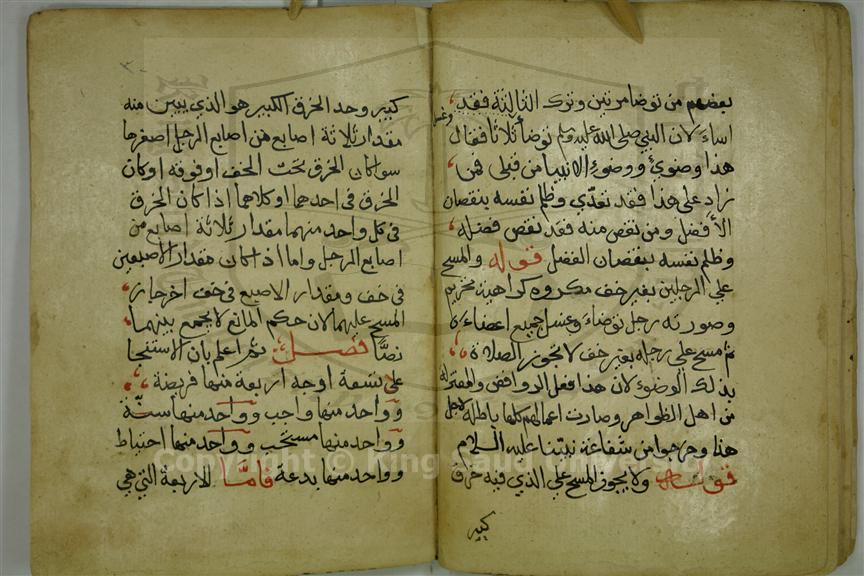 بعضهم من توضا مرتين وترك الثالثة فقد
اساء لان النبي صلى الله عليه وسلم توضأ ثلاثا فقال
هذا وضوئ ووضوء الانبيا من قبلى فمن
زاد على هذا فقد تعدّي وظلم نفسه بنقصان
الافضل ومن نقص منه فقد نقص فضله
وظلم نفسه بنقصان الفضل قوله والمسح
علي الرجلين بغير خف مكروه كراهية تحريم
وصورته رجل توضاء وغسل جميع اعضاءه
ثم مسح على رجله بغير خف لا تجوز الصلاة
بذلك الوضوئ لان هذا فعل الروافض والمعتزلة
من اهل الظواهر وصارت اعمالهم كلها باطلة لاجل
هذا وخرجوا من شفاعة نبيّنا عليه السلام
قوله ولا يجوز المسح علي الذي فيه خرق
كبير
كبير وحد الخرق الكبير هو الذي يبين منه
مقدار ثلاثة اصابع من اصابع الرجل اصغرها
سوا كان الخرق تحت الخف او فوقه او كان
الخرق في احدهما او كلاهما اذا كان الخرق
في كل واحد منهما مقدار ثلاثة اصابع من
اصابع الرجل واما اذا كان مقدار الاصبعين
في خف ومقدار الاصبع في خف اخر جاز
المسح عليهما لان حكم المانع لا يجمع بينهما
نصًّا فصل ثم اعلم بأن الاستنجا
علي تسعة اوجه اربعة منها فريضة
وواحد منها واجب وواحد منها سنّة
وواحد منها مستحب وواحد منها احتياط
وواحد منها بدعة فامّا الاربعة التي هي
Copyright © King Saud University